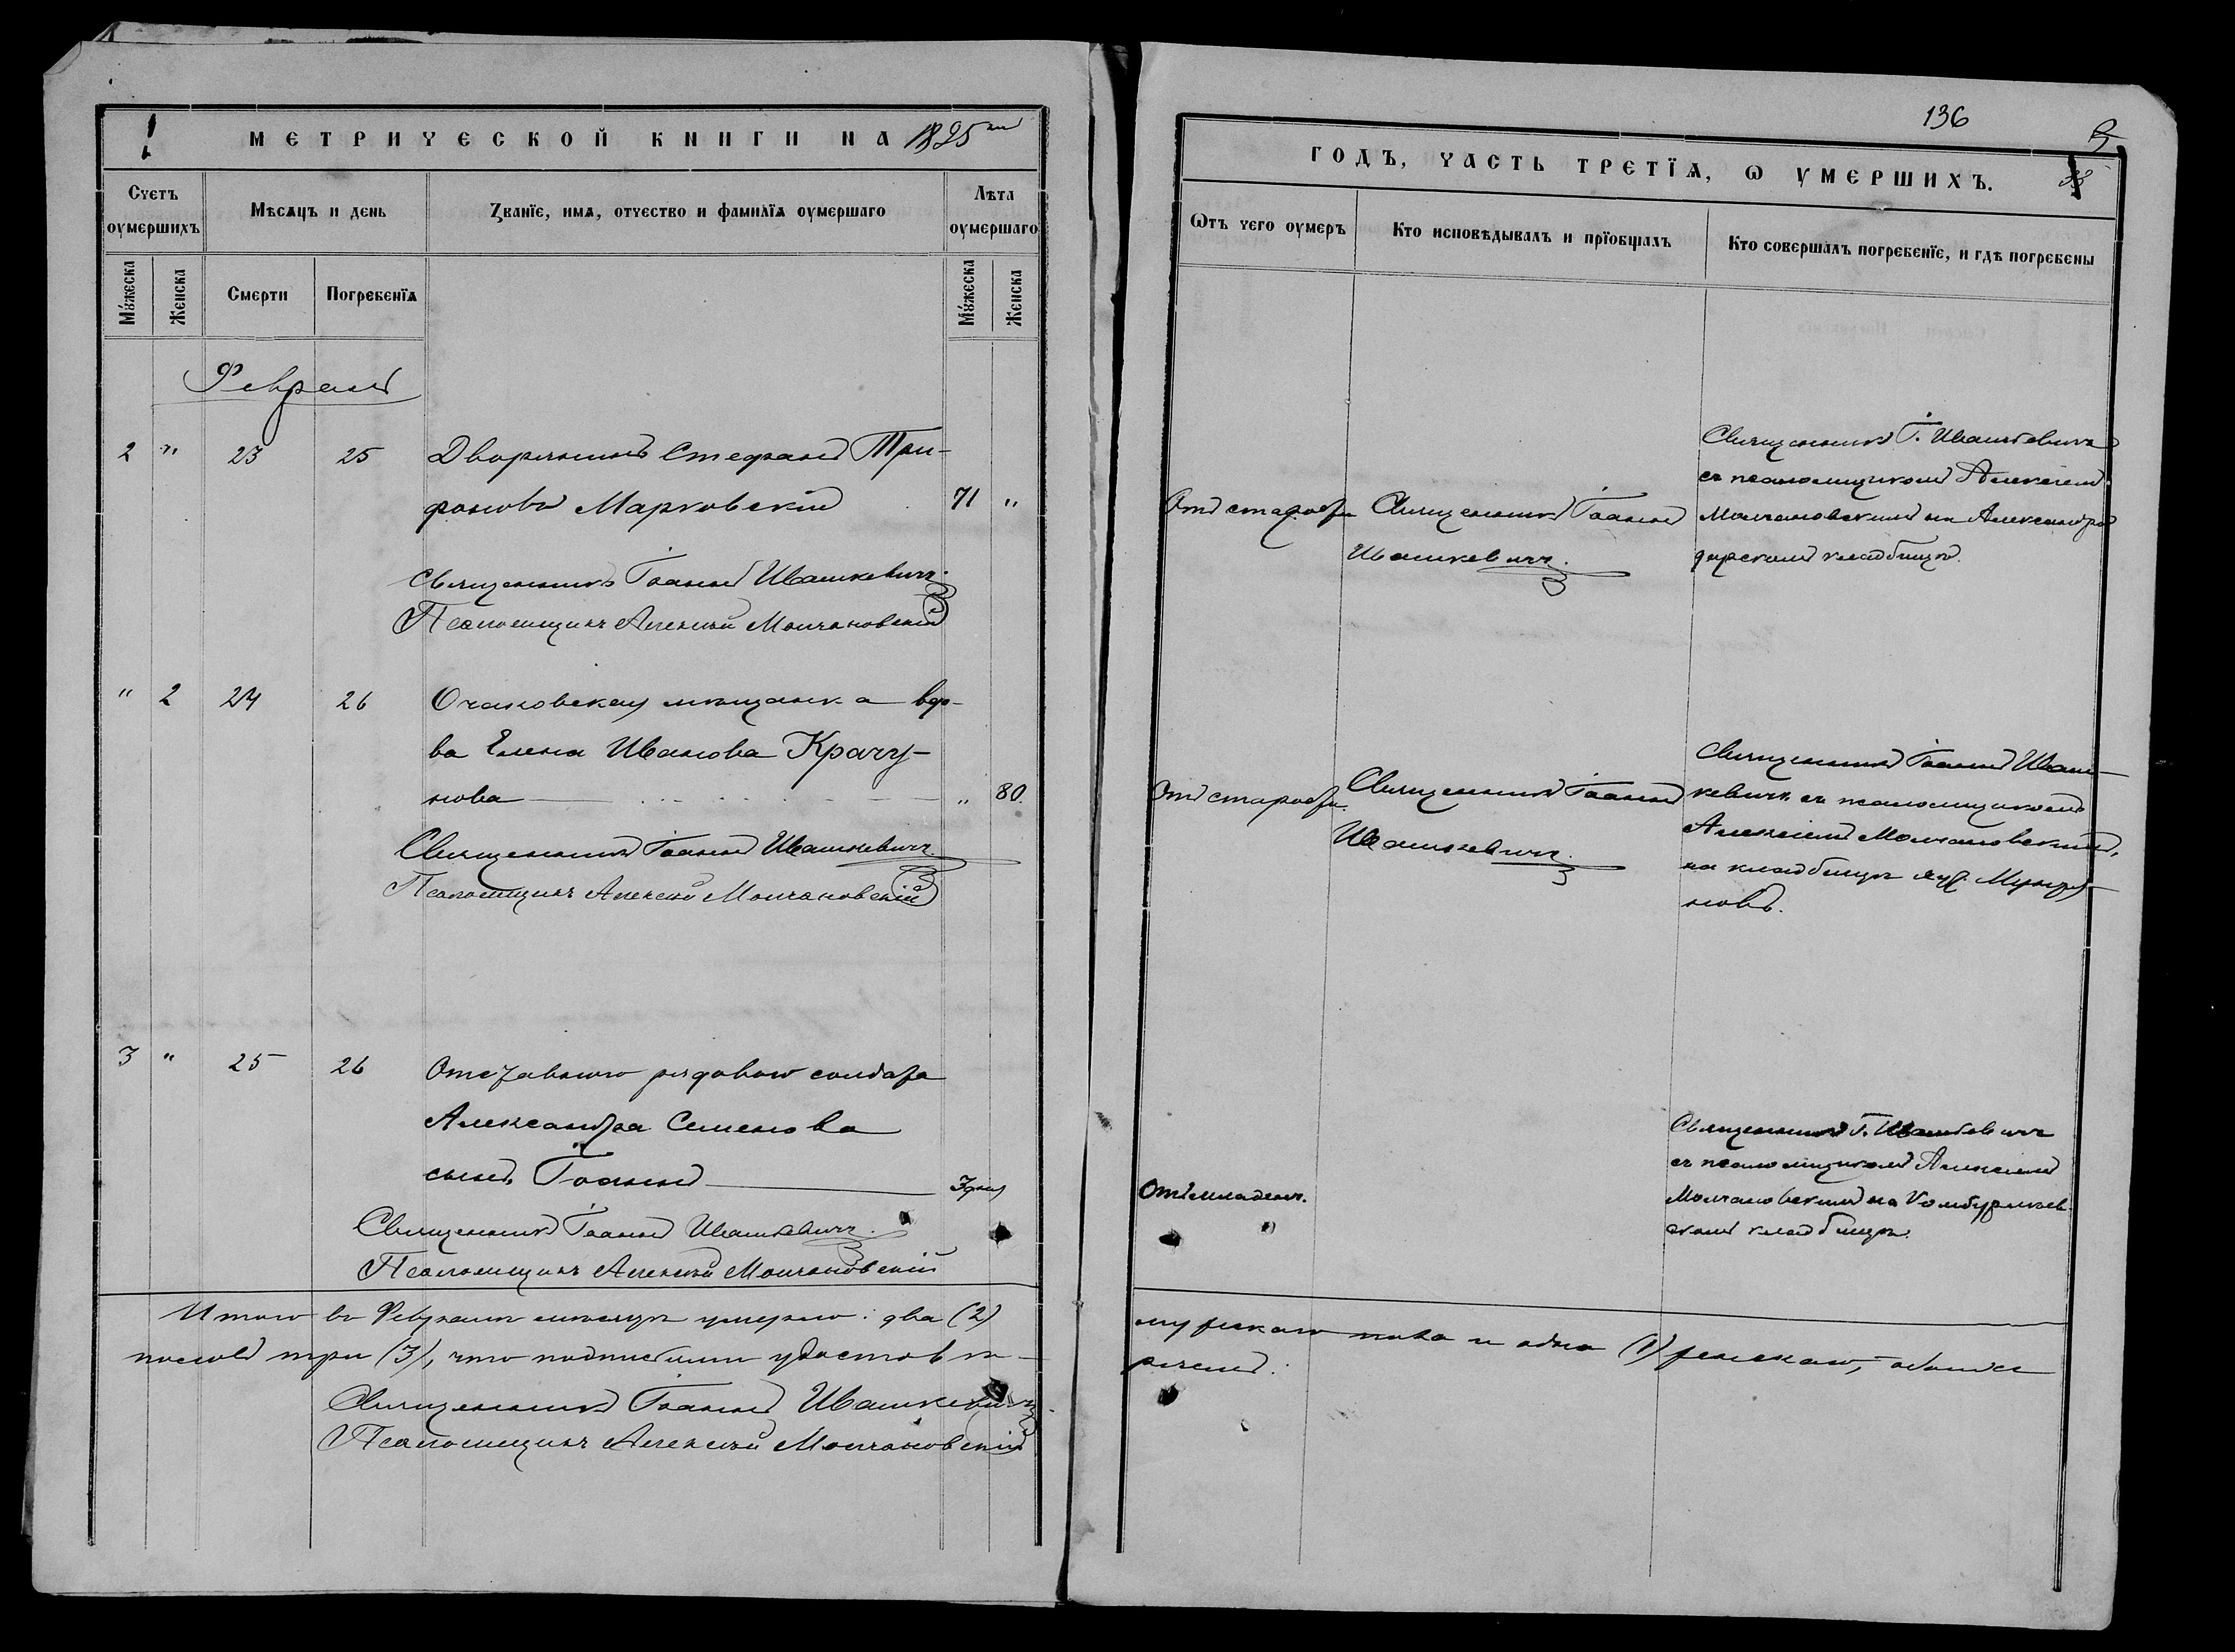 МЕТРИЧЕСКОЙ КНИГИ НА 1895 ый
Счетъ оумершихъ
Мѣсяцъ и день
Званїе, имя, отчество и фамилїя оумершаго
Лѣта оумершаго
Мꙋжеска
Женска
Смерти
Погребенїя
Мꙋжеска
Женска
Февраль
2 " 23 25 Дворянинъ Стефанъ Три-
фоновъ Марковскій 71 "
Священникъ Іоаннъ Ивашкевичъ.
Псаломщикъ Алексѣй Молчановскій
" 2 24 26 Очаковская мѣщанка вдо-
ва Елена Иванова Крачу-
нова " 80.
Священникъ Іоаннъ Ивашкевичъ.
Псаломщикъ Алексѣй Молчановскій
3 " 25 26 Отставного рядового солдата
Александра Семенова
сынъ Іоаннъ 3 дня
Священникъ Іоаннъ Ивашкевичъ.
Псаломщикъ Алексѣй Молчановскій
Итого въ Февралѣ мѣсяцѣ умерло: два (2)
половъ три (3), что подписями удостовѣ-
Священникъ Іоаннъ Ивашкевичъ
Псаломщикъ Алексѣй Молчановскій
136
ГОДЪ, ЧАСТЬ ТРЕТЇЯ, Ѡ УМЕРШИХЪ.
Ѿтъ чего оумеръ
Кто исповѣдывалъ и прїобщалъ
Кто совершалъ погребенїе, и гдѣ погребены
Отъ старости
Священникъ Іоаннъ
Ивашкевичъ.
Священникъ І. Ивашкевичъ
съ псаломщикомъ Алексѣемъ
Молчановскимъ на Александро
дарскомъ кладбищѣ.
Отъ старости.
Священникъ Іоаннъ
Ивашкевичъ.
Священникъ Іоаннъ Иваш-
кевичъ съ псаломщикомъ
Алексѣемъ Молчановскимъ,
на кладбищѣ
новъ.
Отъ младенч.
Священникъ І. Ивашкевичъ
съ псаломщикомъ Алексѣемъ
Молчановскимъ на
скомъ кладбищѣ.
мужескаго пола и одна (1) женскаго, обоихъ
ряемъ.